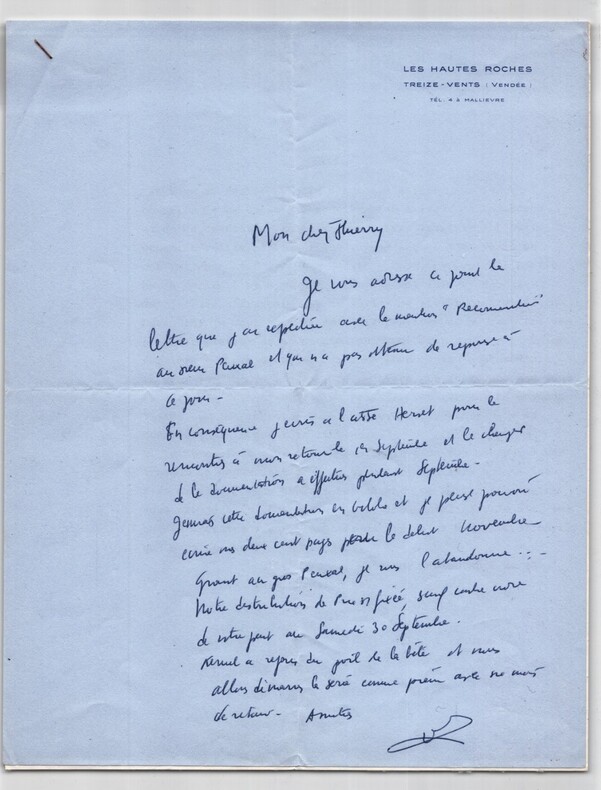 LES HAUTES ROCHES
TREIZE-VENTS (VENDÉE)
TÉL. 4 À MALLIEVRE
Mon cher Thierry
Je vous adresse ce jour la
lettre que j'ai expédiée avec la mention "Recommandé"
au sieur et qui n'a pas obtenu de reponse à
ce jour -
En conséquence j'écris a pour le
rencontrer à mon retour le en Septembre et le charger
de la documentation a effectuer pendant Septembre -
J'aurais cette documentation en Octobre et je pense pouvoir
écrire vos deux cent pages le debut Novembre -
Quant au gros je vous l'abandonne . . . -
Notre distribution de Prix est fixée, sauf contre ordre
de votre part au Samedi 30 Septembre.
a repris du poil de la bête et nous
allons demarrer la série comme prévu avec un mois
de retard - Amitiés